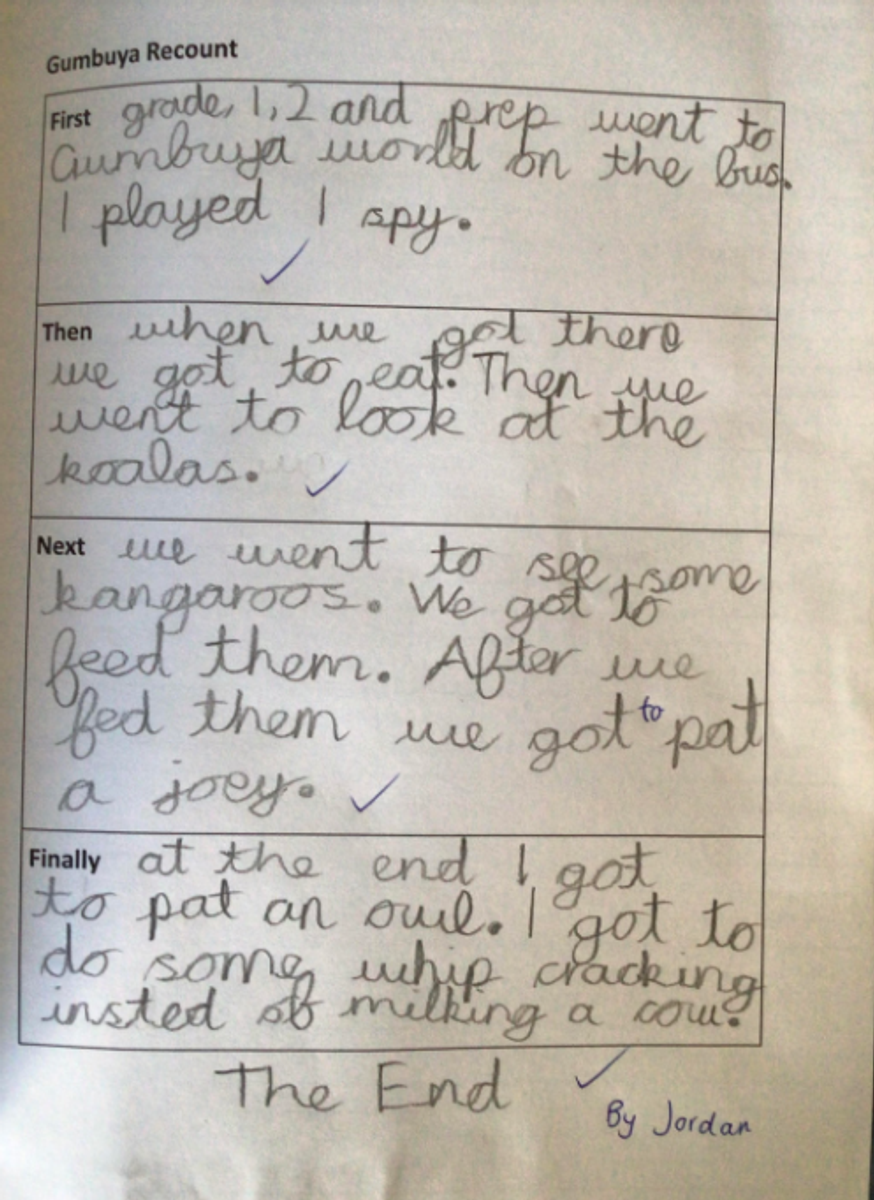 Gumbuya Recount
First grade, 1, 2 and prep went to
Gumbuya world on the bus.
I played I spy.
Then when we got there
we got to eat. Then we
went to look at the
koalas.
Next we went to see some
kangaroos. We got to
feed them. After we
fed them we got to pat
a joey.
Finally at the end I got
to pat an owl. I got to
do some whip cracking
insted of milking a cow.
The End
By Jordan